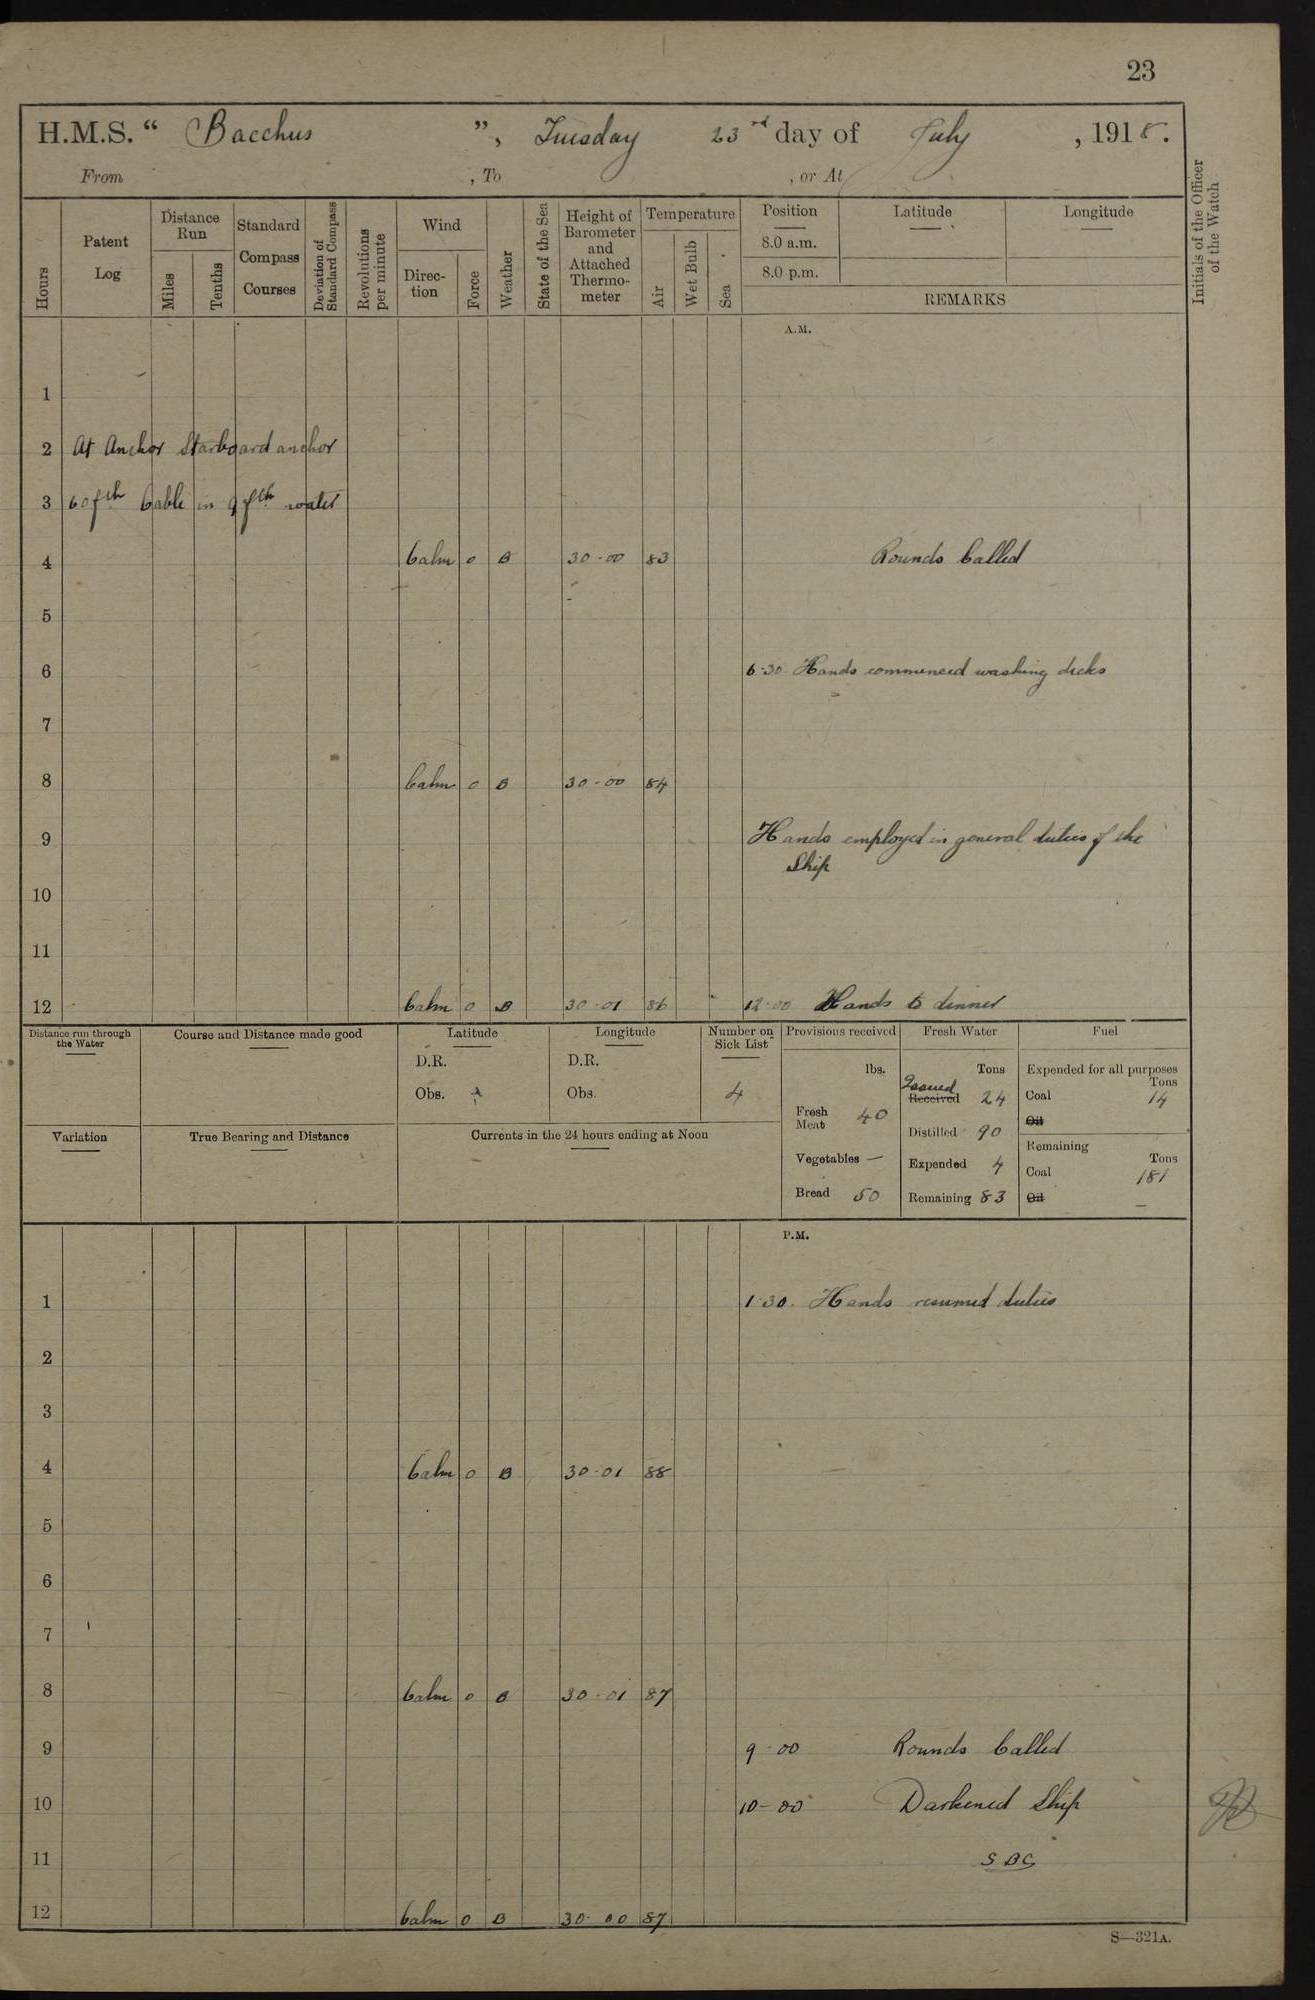 23
H.M.S. “ Bacchus ”, Tuesday 23rd day of July , 1918.
From , To , or At
Hours
Patent Log
Distance Run
Miles
Tenths
Standard Compass Courses
Deviation of Standard Compass
Revolutions per minute
Wind
Direction
Force
Weather
State of the Sea
Height of Barometer and Attached Thermometer
Temperature
Air
Wet Bulb
Sea
Position
8.0 a.m.
8.0 p.m.
Latitude
Longitude
REMARKS
Initials of the Officer of the Watch
A.M.
1
2 At Anchor Starboard anchor
3 60 fth Cable in 9 fth water
4 Calm 0 B 30-00 83 Rounds Called
5
6 6-30 Hands commenced washing decks
7
8 Calm 0 B 30-00 84
9 Hands employed in general duties of the
Ship
10
11
12 Calm 0 B 30-01 86 12-00 Hands to dinner
Distance run through the Water
Course and Distance made good
Latitude
D.R.
Obs.
Longitude
D.R.
Obs.
Number on Sick List
4
Provisions received
lbs.
Fresh Meat 40
Vegetables —
Bread 50
Fresh Water
Tons
Issued
Received 24
Distilled 90
Expended 4
Remaining 83
Fuel
Expended for all purposes
Tons
Coal 14
Oil
Remaining
Tons
Coal 181
Oil —
Variation
True Bearing and Distance
Currents in the 24 hours ending at Noon
P.M.
1 1-30. Hands resumed duties
2
3
4 Calm 0 B 30-01 88
5
6
7
8 Calm 0 B 30-01 87
9 9-00 Rounds Called
10 10-00 Darkened Ship
11 SBC
12 Calm 0 B 30-00 87
S—321A.